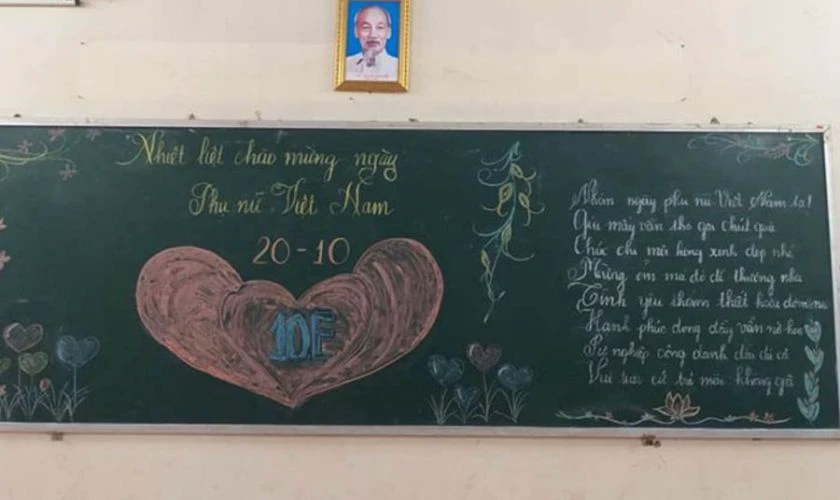 Nhiệt liệt chào mừng ngày
Phụ nữ Việt Nam
20-10
10F
Nhân ngày phụ nữ Việt Nam ta!
Gửi mấy vần thơ gọi chút quà
Chúc chị môi hồng xinh đẹp nhé
Mừng em má đỏ dễ thương nha
Tình yêu thắm thiết
Hạnh phúc dong đầy vẫn nở hoa
Sự nghiệp công danh đều đủ cả
Vui tươi cứ trẻ mãi không già